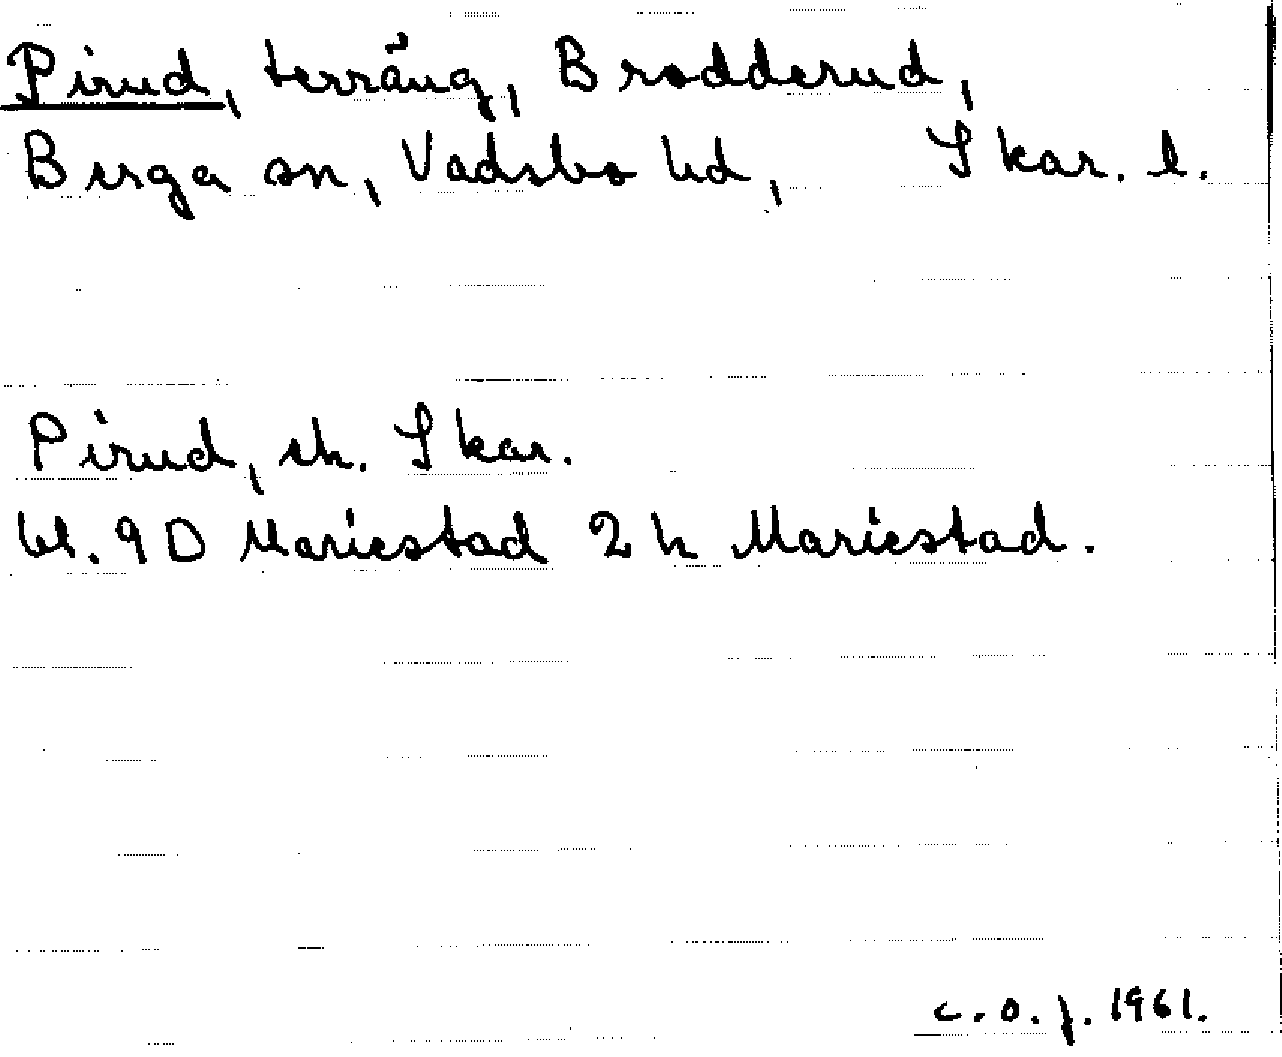 Pirud, terräng, Brodderud,
Berga sn, Vadsbo hd, Skar. l.
Pirud, sk. Skar.
bl. 9D Mariestad 2h Mariestad.
c.o.f. 1961.